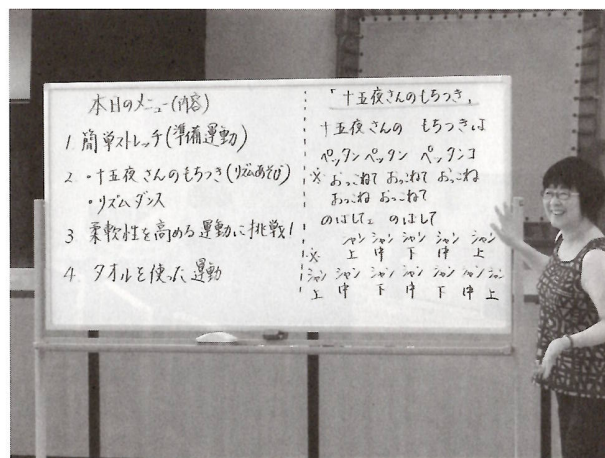 本日のメニュー(内容)
1 簡単ストレッチ(準備運動)
2 ・十五夜さんのもちつき(リズムあそび)
・リズムダンス
3 柔軟性を高める運動に挑戦!
4 タオルを使った運動
「十五夜さんのもちつき」
十五夜さんの もちつきは
ペッタン ペッタン ペッタンコ
※ おっこねて おっこねて おっこね
おっこね おっこねて
のばして のばして
シャン シャン シャン シャン シャン
※ 上 中 下 中 上
シャン シャン シャン シャン シャン シャン
上 中 下 中 下 中 上